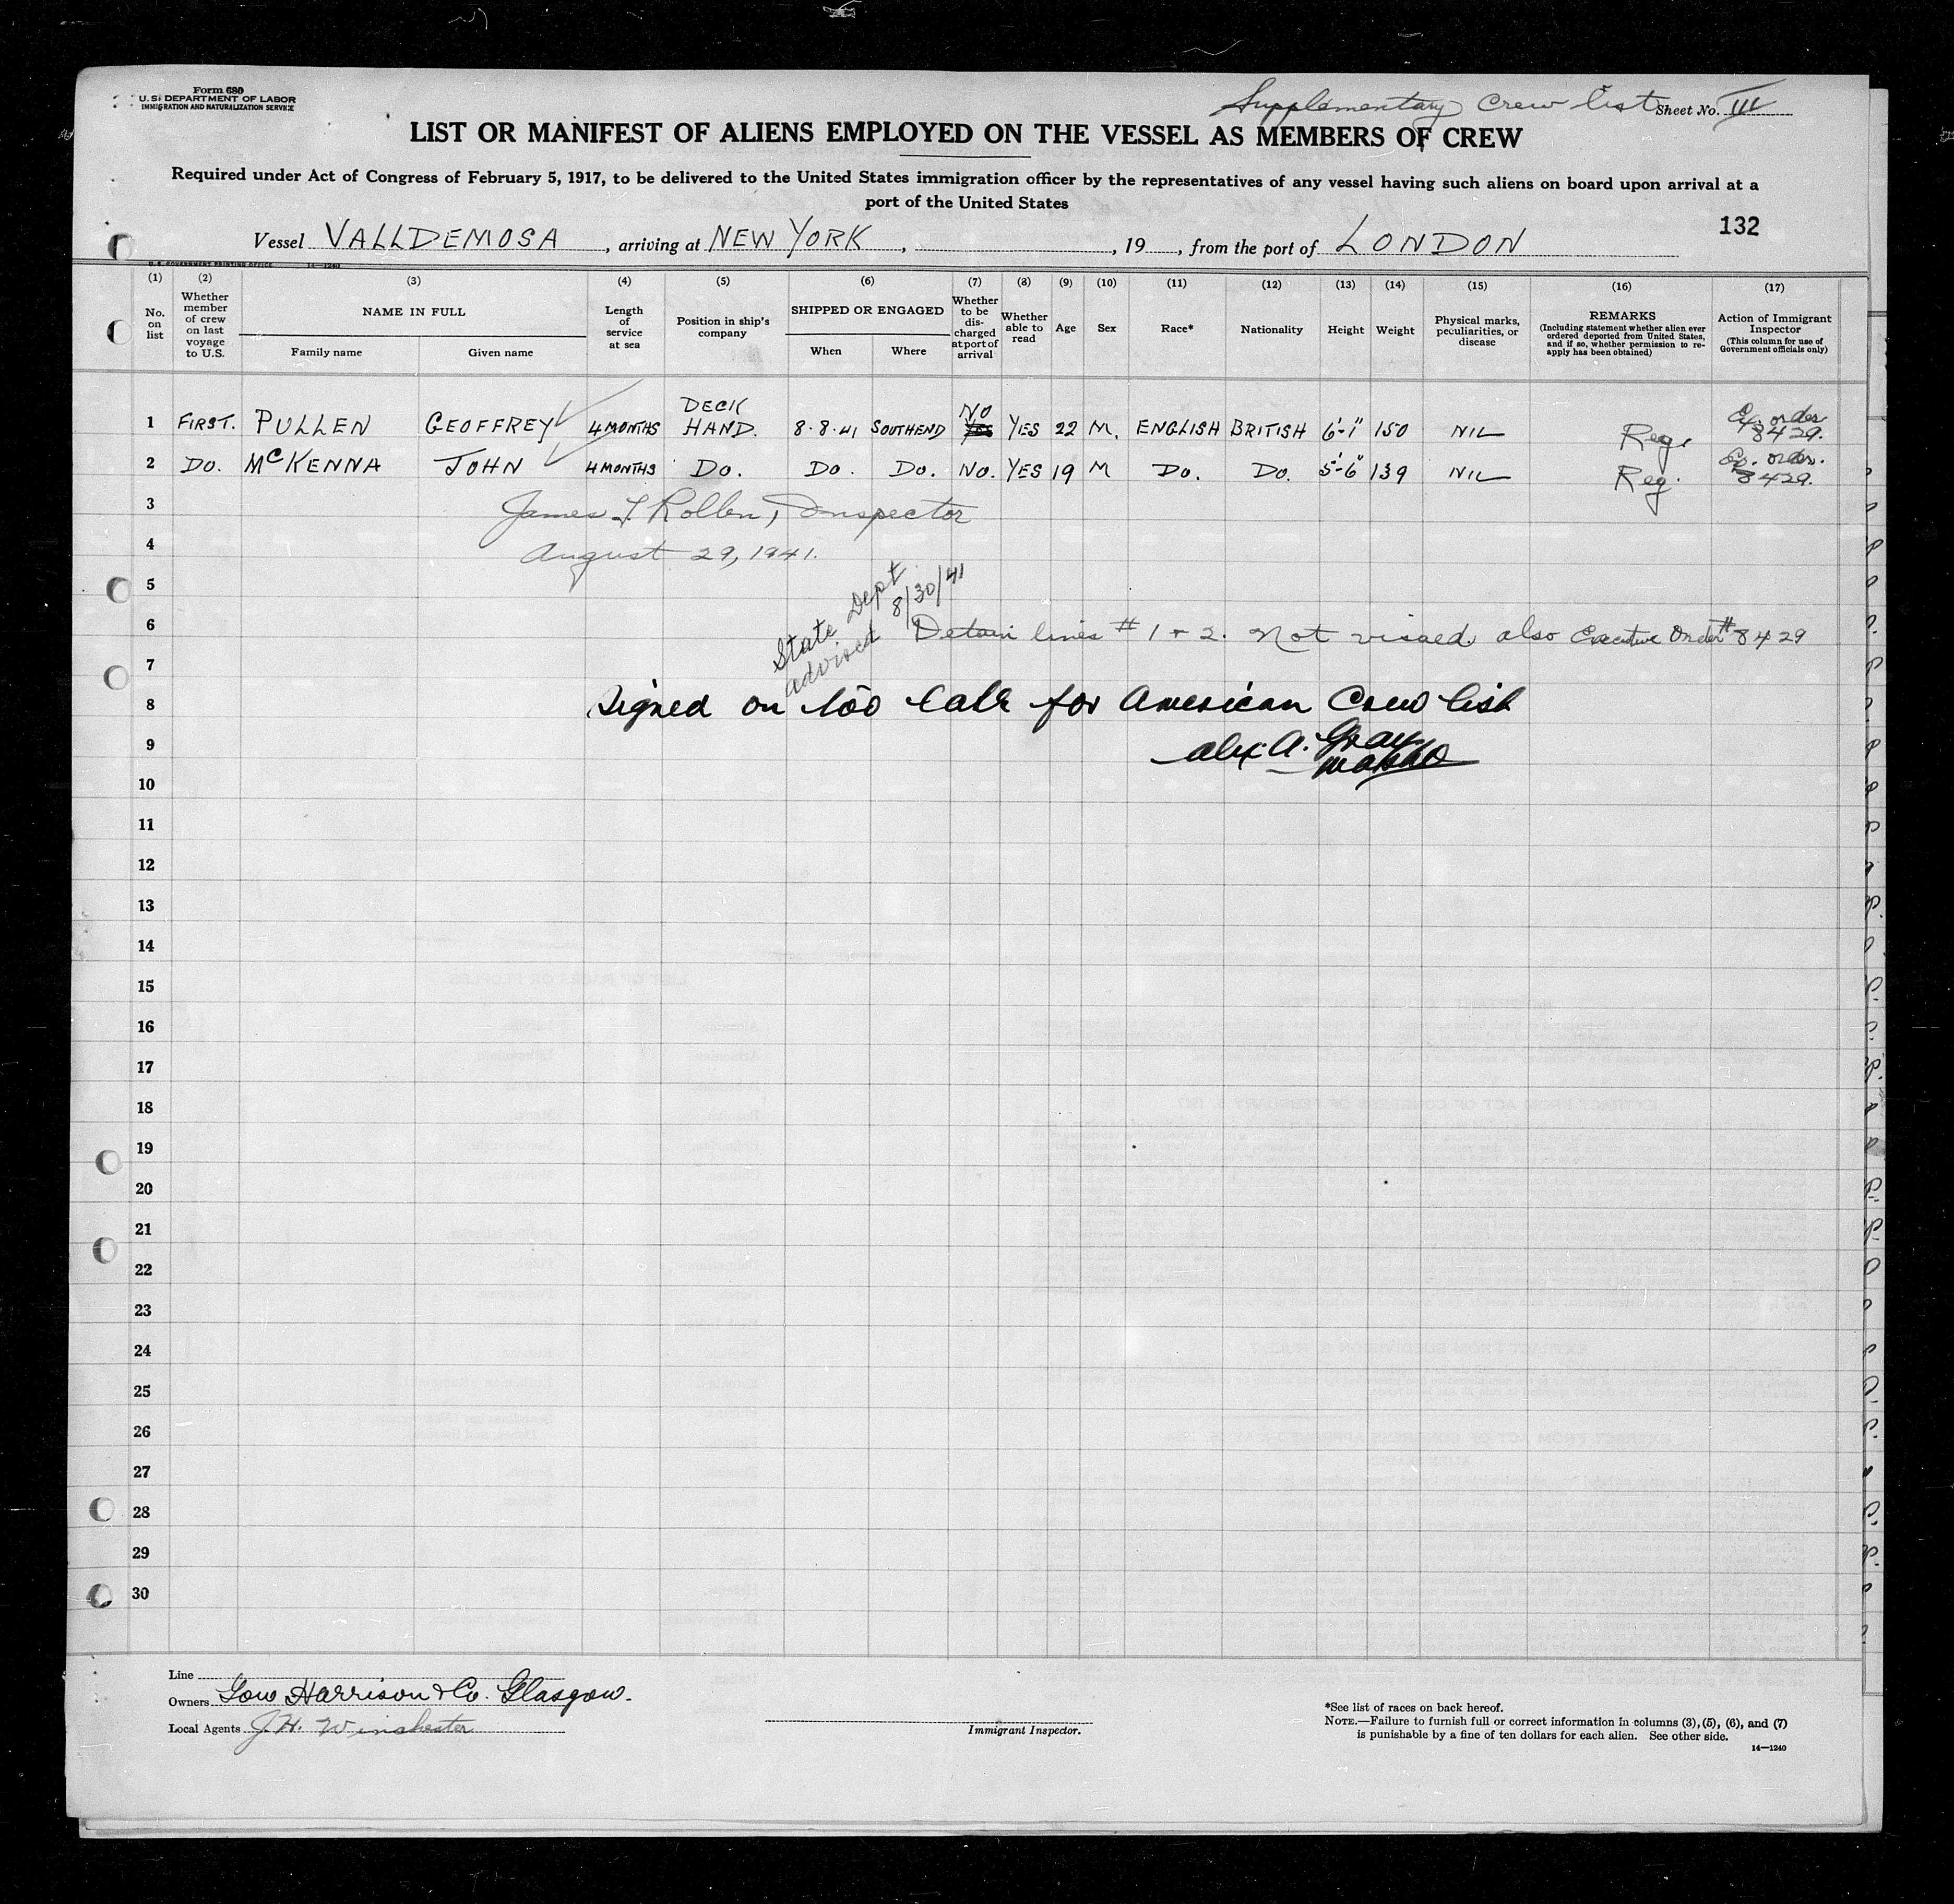 Form 680
U.S. DEPARTMENT OF LABOR
IMMIGRATION AND NATURALIZATION SERVICE
Supplementary Crew List Sheet No. III
LIST OR MANIFEST OF ALIENS EMPLOYED ON THE VESSEL AS MEMBERS OF CREW
Required under Act of Congress of February 5, 1917, to be delivered to the United States immigration officer by the representatives of any vessel having such aliens on board upon arrival at a
port of the United States
132
Vessel VALLDEMOSA, arriving at NEW YORK, , 19 , from the port of LONDON
U.S. GOVERNMENT PRINTING OFFICE 14—1240
(1) (2) (3) (4) (5) (6) (7) (8) (9) (10) (11) (12) (13) (14) (15) (16) (17)
No. on list
Whether member of crew on last voyage to U.S.
NAME IN FULL
Family name Given name
Length of service at sea
Position in ship's company
SHIPPED OR ENGAGED
When Where
Whether to be dis-charged at port of arrival
Whether able to read
Age
Sex
Race*
Nationality
Height
Weight
Physical marks, peculiarities, or disease
REMARKS
(Including statement whether alien ever ordered deported from United States, and if so, whether permission to re-apply has been obtained)
Action of Immigrant Inspector
(This column for use of Government officials only)
1 FIRST. PULLEN GEOFFREY 4 MONTHS DECK HAND. 8.8.41 SOUTHEND NO YES 22 M. ENGLISH BRITISH 6'-1" 150 NIL Reg. Ex. order 8429.
2 DO. McKENNA JOHN 4 MONTHS DO. DO. DO. NO. YES 19 M DO. DO. 5'-6" 139 NIL Reg. Ex. order. 8429.
3 James Inspector
4 August 29, 1941.
5
State Dept
advised 8/30/41
6 Detain lines # 1 + 2. Not visaed also Executive Order # 8429
7
8 Signed on too late for American Crew list
9 Alex A. Gray
Master
10
11
12
13
14
15
16
17
18
19
20
21
22
23
24
25
26
27
28
29
30
Line
Owners Gow Harrison & Co. Glasgow.
Local Agents J.H. Winchester
Immigrant Inspector.
*See list of races on back hereof.
NOTE.—Failure to furnish full or correct information in columns (3), (5), (6), and (7)
is punishable by a fine of ten dollars for each alien. See other side.
14—1240